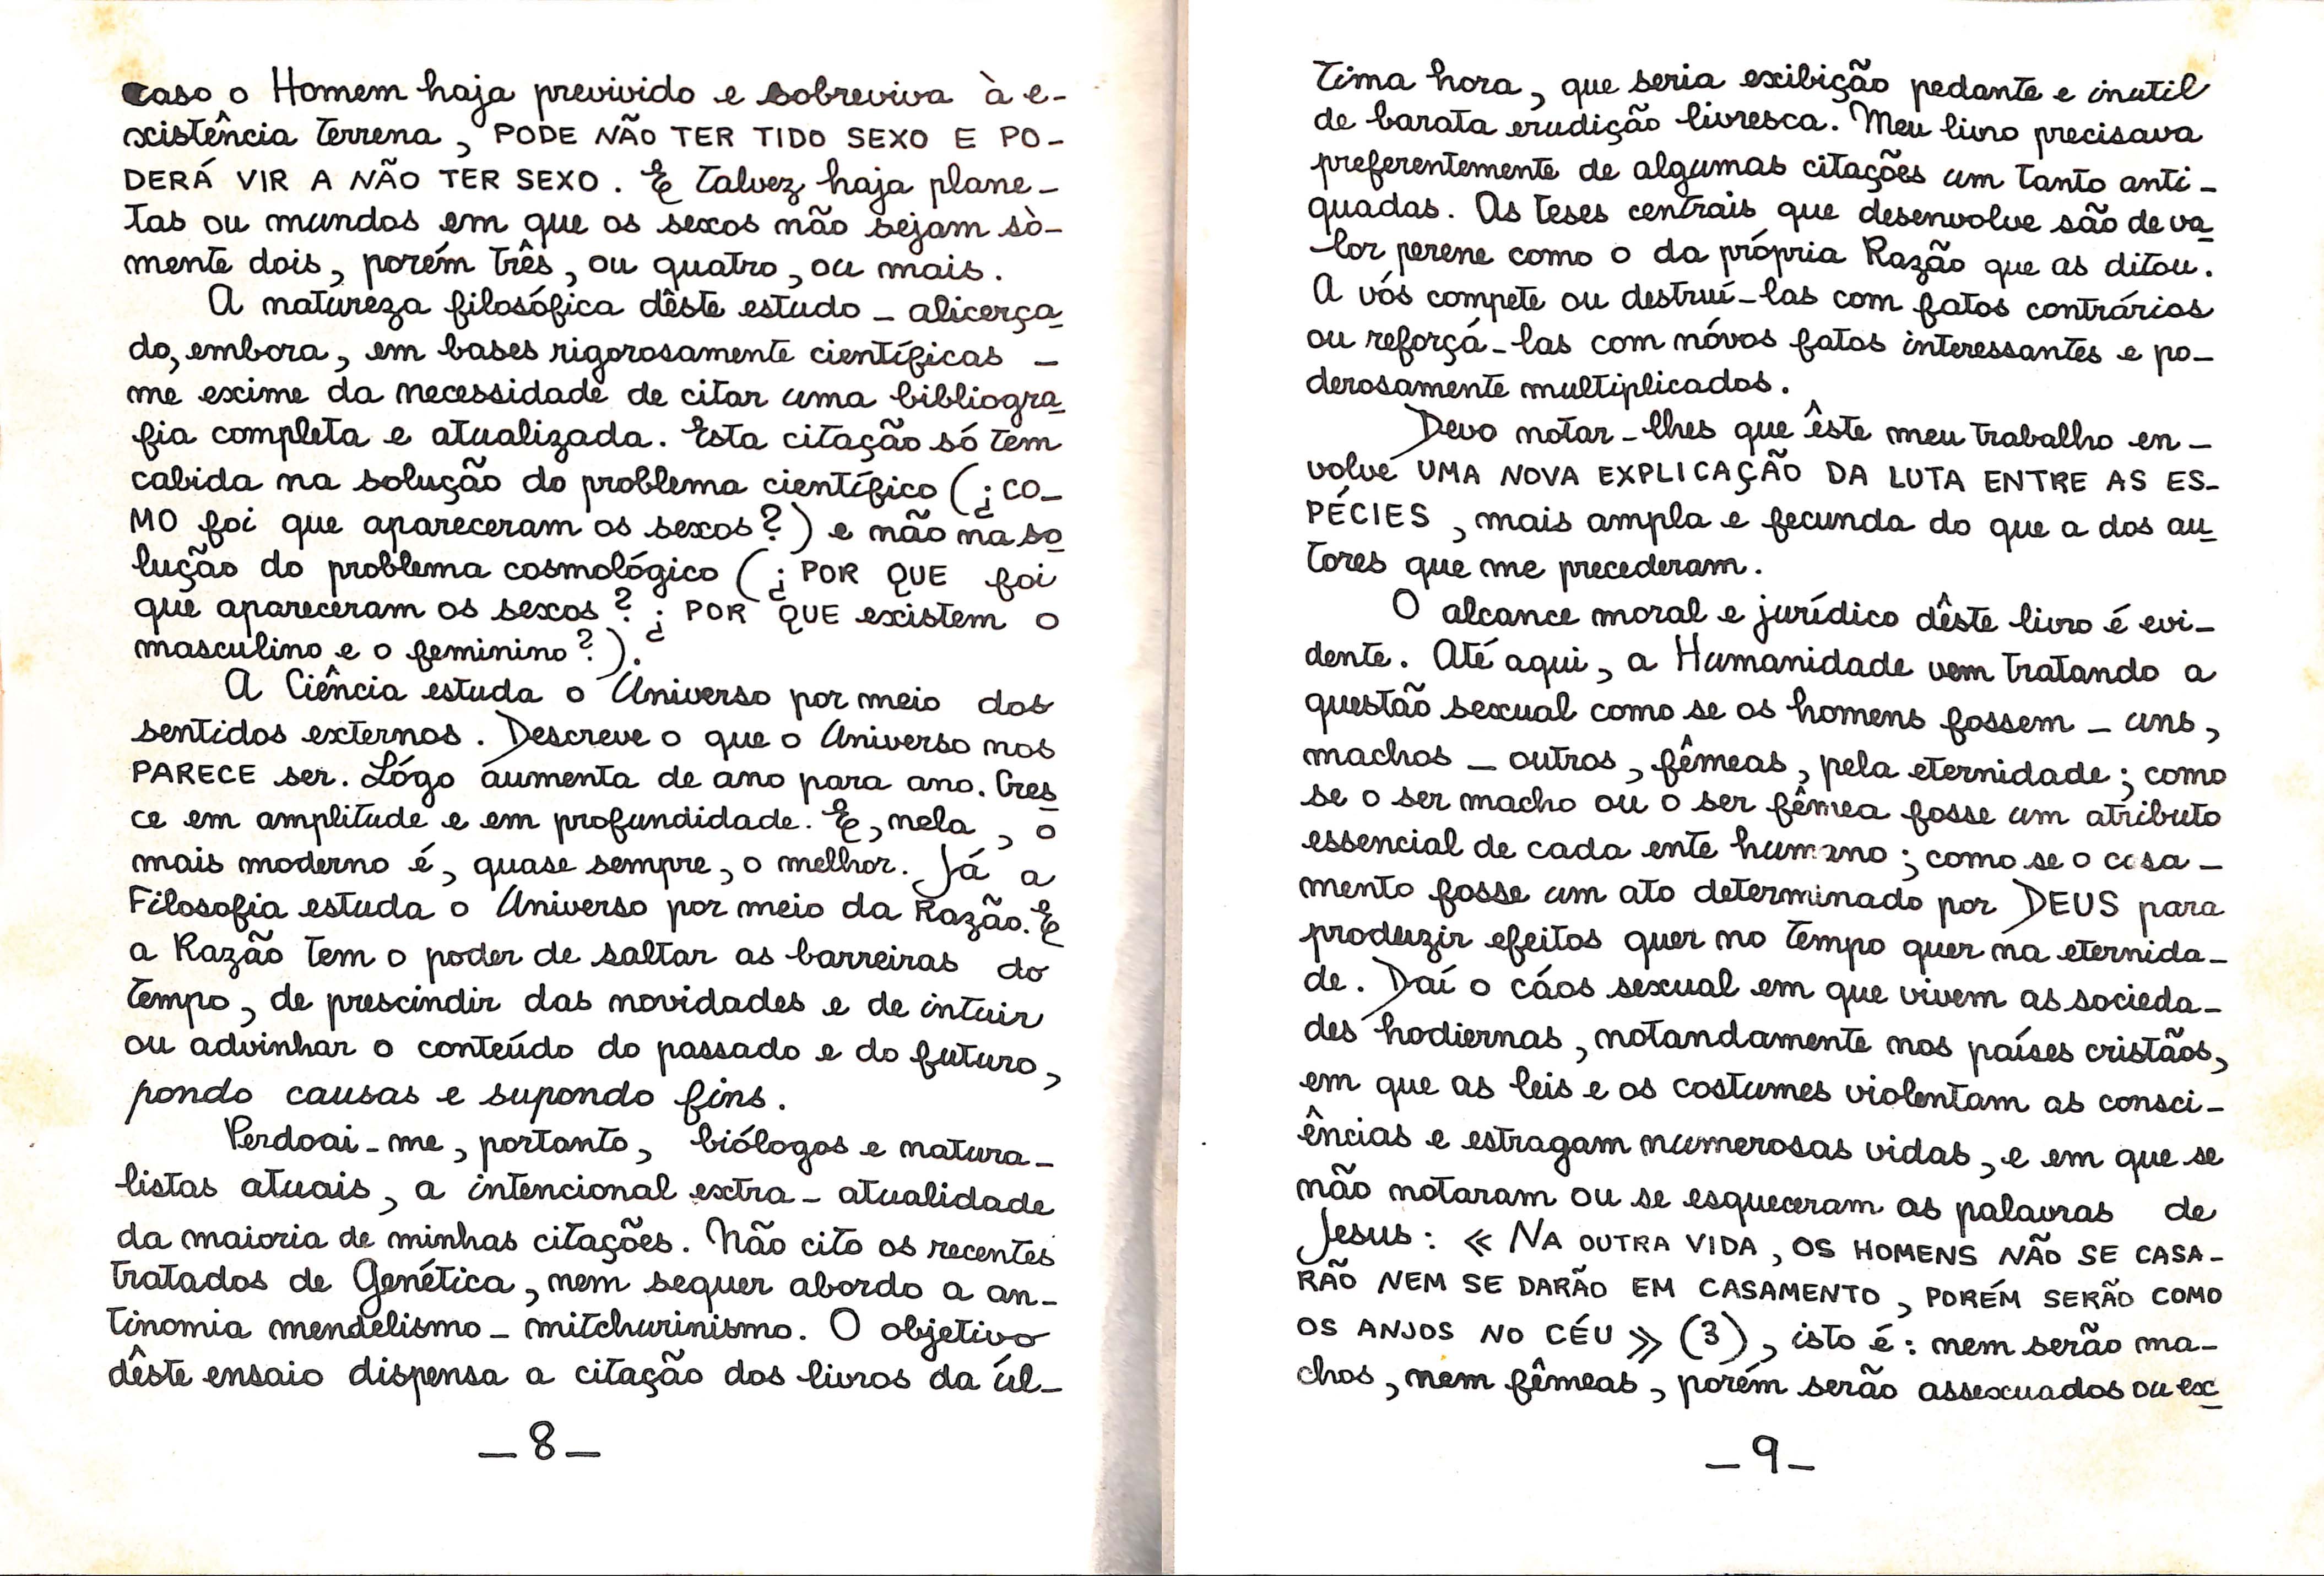 caso o Homem haja previvido e sobreviva à e-
xistência terrena, PODE NÃO TER TIDO SEXO E PO-
DERÁ VIR A NÃO TER SEXO. E talvez haja plane-
tas ou mundos em que os sexos não sejam sò-
mente dois, porém três, ou quatro, ou mais.
A natureza filosófica dêste estudo - alicerça
do, embora, em bases rigorosamente científicas -
me exime da necessidade de citar uma bibliogra
fia completa e atualizada. Esta citação só tem
cabida na solução do problema científico (¿CO-
MO foi que apareceram os sexos?) e não na so
lução do problema cosmológico (¿POR QUE foi
que apareceram os sexos? ¿POR QUE existem o
masculino e o feminino?).
A Ciência estuda o Universo por meio dos
sentidos externos. Descreve o que o Universo nos
PARECE ser. Lógo aumenta de ano para ano. Cres
ce em amplitude e em profundidade. E, nela, o
mais moderno é, quase sempre, o melhor. Já a
Filosofia estuda o Universo por meio da Razão. E
a Razão tem o poder de saltar as barreiras do
tempo, de prescindir das novidades e de intuir
ou advinhar o conteúdo do passado e do futuro,
pondo causas e supondo fins.
Perdoai-me, portanto, biólogos e natura-
listas atuais, a intencional extra-atualidade
da maioria de minhas citações. Não cito os recentes
tratados de Genética, nem sequer abordo a an-
tinomia mendelismo-mitchurinismo. O objetivo
dêste ensaio dispensa a citação dos livros da úl-
-8-
tima hora, que seria exibição pedante e inutil
de barata erudição livresca. Meu livro precisava
preferentemente de algumas citações um tanto anti-
quadas. As teses centrais que desenvolve são de va
lor perene como o da própria Razão que as ditou.
A vós compete ou destruí-las com fatos contrários
ou reforçá-las com nóvos fatos interessantes e po-
derosamente multiplicados.
Devo notar-lhes que êste meu trabalho en-
volve UMA NOVA EXPLICAÇÃO DA LUTA ENTRE AS ES-
PÉCIES, mais ampla e fecunda do que a dos au
tores que me precederam.
O alcance moral e jurídico dêste livro é evi-
dente. Até aqui, a Humanidade vem tratando a
questão sexual como se os homens fossem - uns,
machos - outros, fêmeas, pela eternidade; como
se o ser macho ou o ser fêmea fosse um atributo
essencial de cada ente humano; como se o casa-
mento fosse um ato determinado por DEUS para
produzir efeitos quer no tempo quer na eternida-
de. Daí o cáos sexual em que vivem as socieda-
des hodiernas, notandamente nos países cristãos,
em que as leis e os costumes violentam as consci-
ências e estragam numerosas vidas, e em que se
não notaram ou se esqueceram as palavras de
Jesus: «NA OUTRA VIDA, OS HOMENS NÃO SE CASA-
RÃO NEM SE DARÃO EM CASAMENTO, PORÉM SERÃO COMO
OS ANJOS NO CÉU» (3), isto é: nem serão ma-
chos, nem fêmeas, porém serão assexuados ou ex
-9-